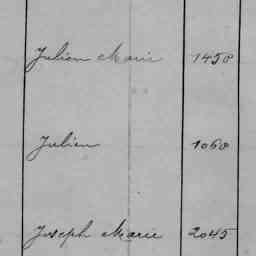 Julien Marie 1458
Julien 1068
Joseph Marie 2045